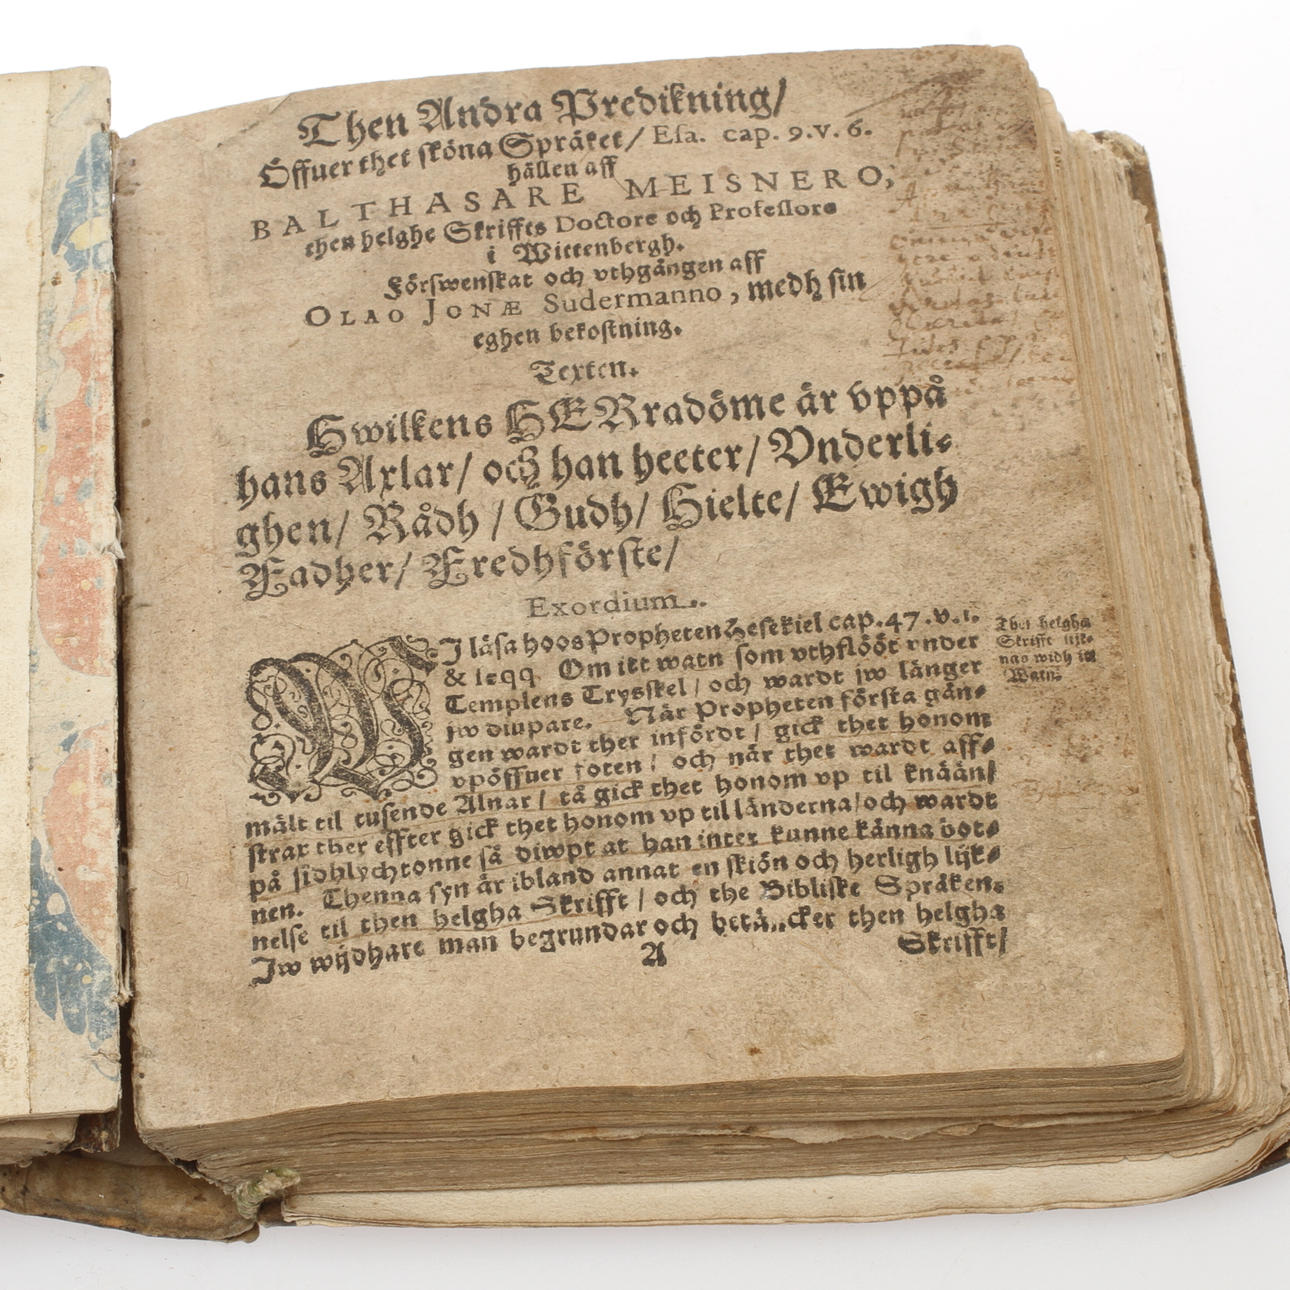 Then Andra Predikning/
Öffuer thet sköna Språket/ Esa. cap. 9. v. 6.
hållen aff
BALTHASARE MEISNERO,
then helghe Skriffts Doctore och Professore
i Wittenbergh.
Förswenskat och vthgången aff
OLAO JONÆ Sudermanno, medh sin
eghen bekostning.
Texten.
Hwilkens HERradöme är vppå
hans Axlar/ och han heeter/ Vnderli-
ghen/ Rådh/ Gudh/ Hielte/ Ewigh
Fadher/ Fredhförste/
Exordium.
WI läsa hoos Propheten Hesekiel cap. 47. v. 1.
& seqq. Om itt watn som vthflööt vnder
Templens Trysskel/ och wardt jw länger
jw diupare. När Propheten första gån-
gen wardt ther infördt/ gick thet honom
vpöffuer foten/ och när thet wardt aff-
mält til tusende Alnar/ tå gick thet honom vp til knään/
strax ther effter gick thet honom vp til länderna/ och wardt
på sidhlychtonne så diwpt at han intet kunne känna bot-
nen. Thenna syn är ibland annat en skiön och herligh lijk-
nelse til then helgha Skrifft/ och the Bibliske Språken.
Jw wijdhare man begrundar och betäncker then helgha
A
Skrifft/
Then helgha
Skrifft lijk-
nas widh itt
Watn.